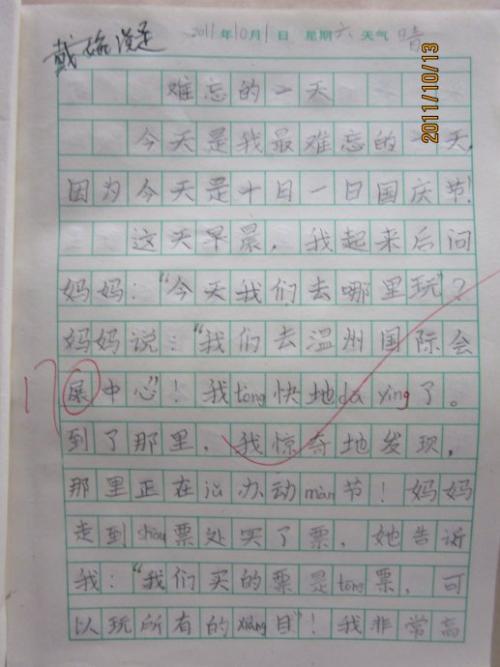 2011年10月1日 星期六 天气 晴
2011/10/13
难忘的一天
今天是我最难忘的一天,
因为今天是十月一日国庆节!
这天早晨，我起来后问
妈妈："今天我们去哪里玩"?
妈妈说："我们去温州国际会
展中心"! 我tòng快地dā yìng了。
到了那里，我惊奇地发现，
那里正在 办动màn节! 妈妈
走到shòu票处买了票，她告诉
我："我们买的票是tōng票，可
以玩所有的xiàng目"! 我非常高